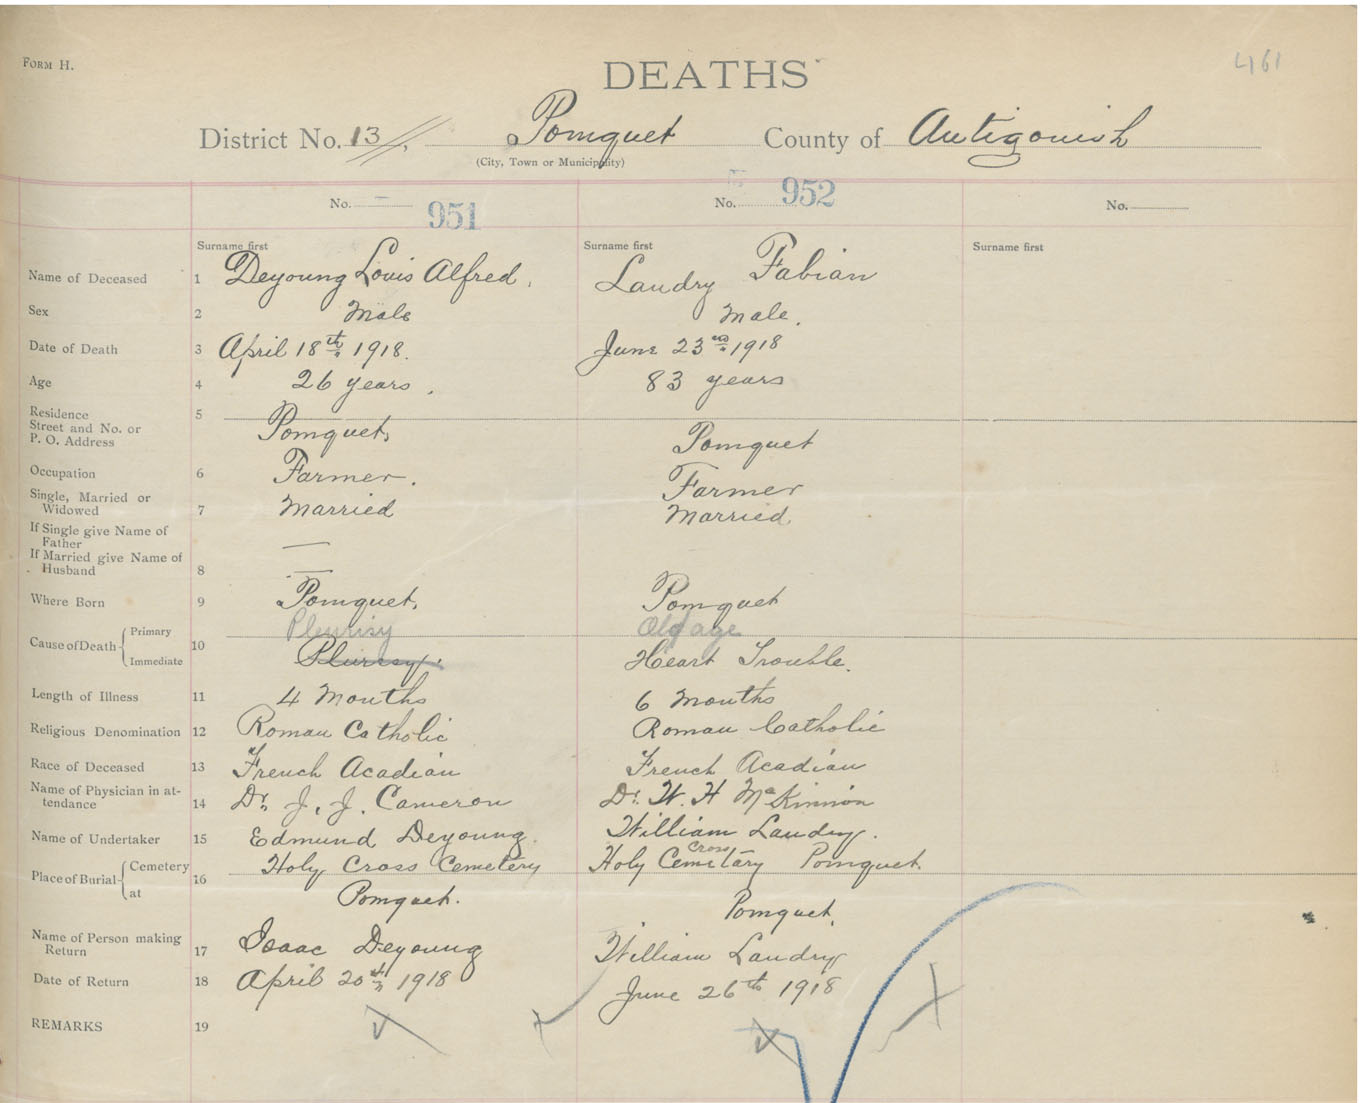 FORM H.
DEATHS
461
District No. 13, Pomquet County of Antigonish
(City, Town or Municipality)
No. 951
No. 952
No.
Surname first
Surname first
Surname first
Name of Deceased 1 Deyoung Louis Alfred. Landry Fabian
Sex 2 Male Male.
Date of Death 3 April 18th 1918. June 23rd 1918
Age 4 26 years. 83 years
Residence 5
Street and No. or
P. O. Address Pomquet, Pomquet
Occupation 6 Farmer. Farmer
Single, Married or
Widowed 7 Married Married
If Single give Name of
Father —
If Married give Name of
Husband 8 —
Where Born 9 Pomquet, Pomquet
Cause of Death Primary 10 Pleurisy Old age
Immediate Plurisy. Heart Trouble.
Length of Illness 11 4 Months 6 months
Religious Denomination 12 Roman Catholic Roman Catholic
Race of Deceased 13 French Acadian French Acadian
Name of Physician in at-
tendance 14 Dr. J. J. Cameron Dr. W. H McKinnon
Name of Undertaker 15 Edmund Deyoung. William Landry.
Place of Burial Cemetery 16 Holy Cross Cemetery Holy Cross Cemetary Pomquet.
at Pomquet. Pomquet.
Name of Person making
Return 17 Isaac Deyoung William Landry
Date of Return 18 April 20th 1918 June 26th 1918
REMARKS 19